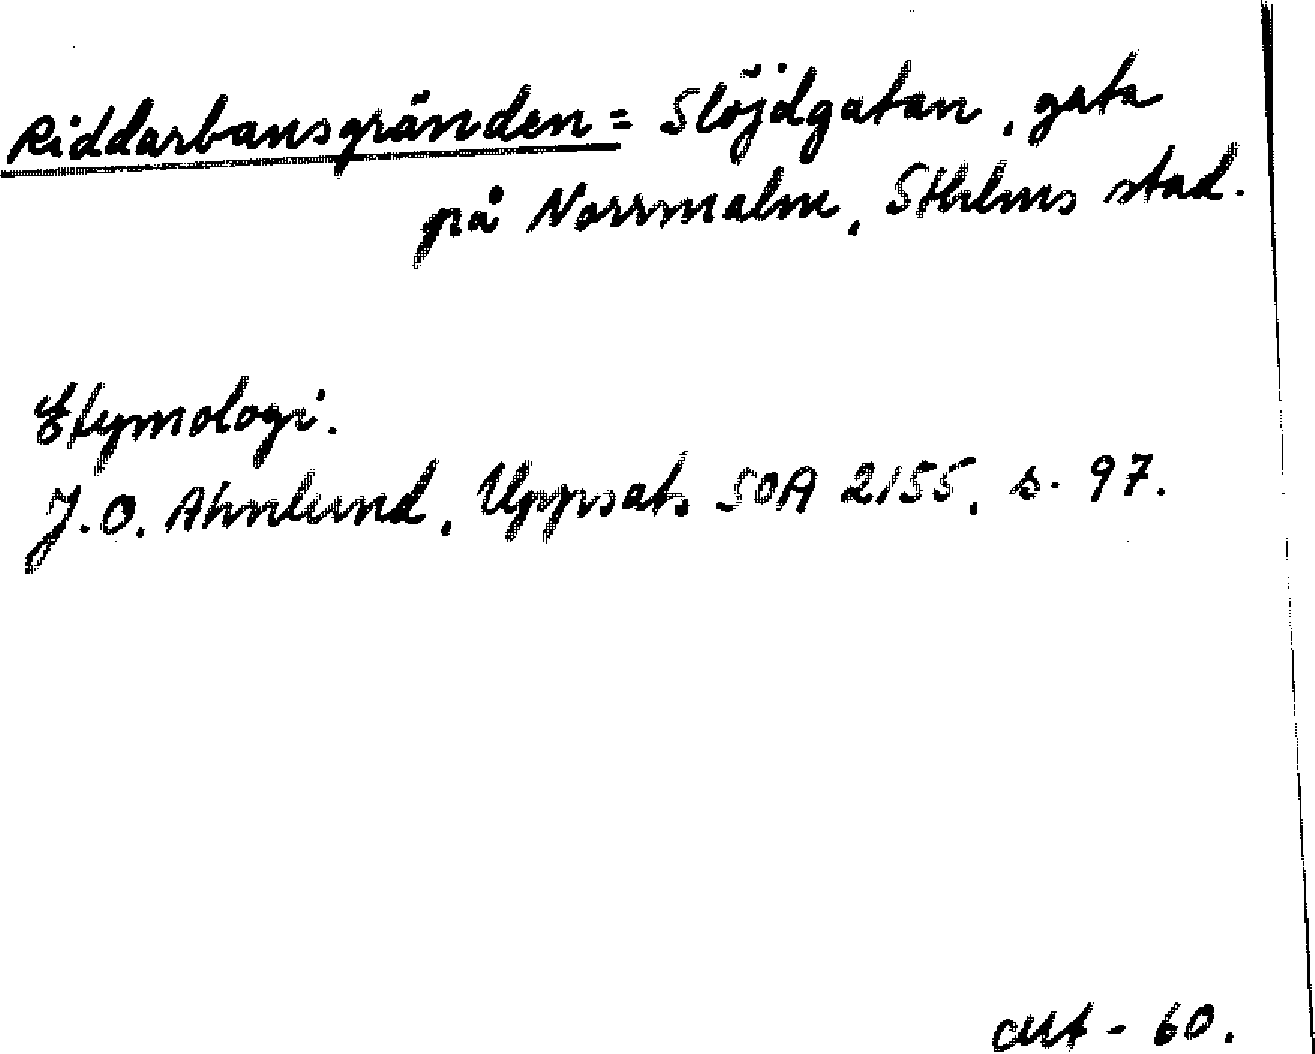 Riddarbansgränden = Slöjdgatan, gata
på Norrmalm, Sthlms stad.
Etymologi.
J.O. Ahnlund, Uppsats SOA 2155, s. 97.
- 60.